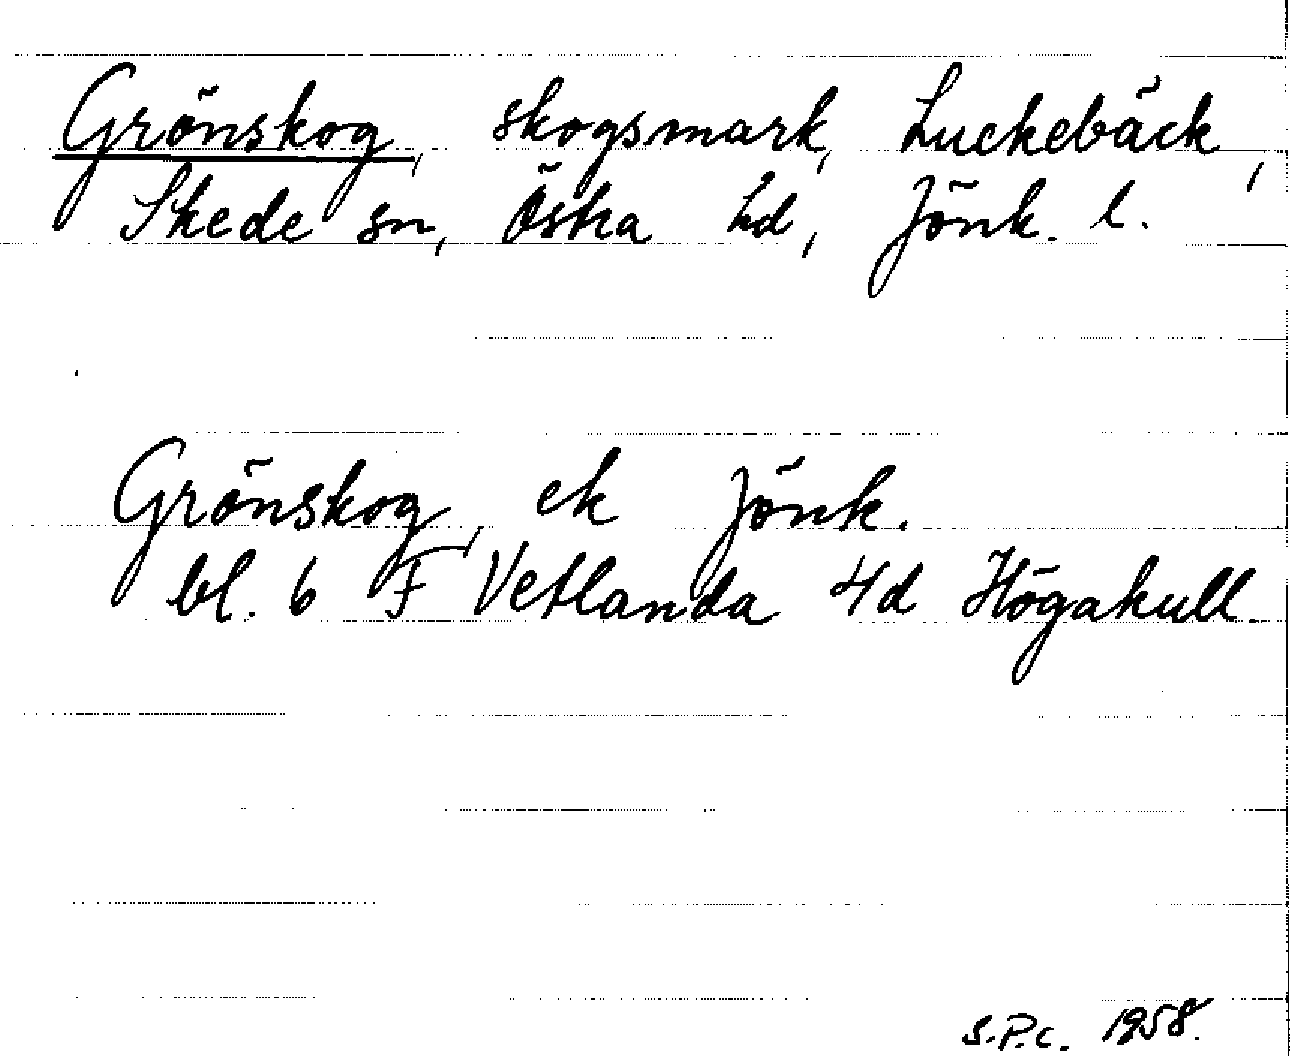 Grönskog, skogsmark, Luckebäck,
Skede sn, Östra hd, Jönk. l.
Grönskog, ek Jönk.
bl. 6 F Vetlanda 4d Högakull
S.P.C. 1958.